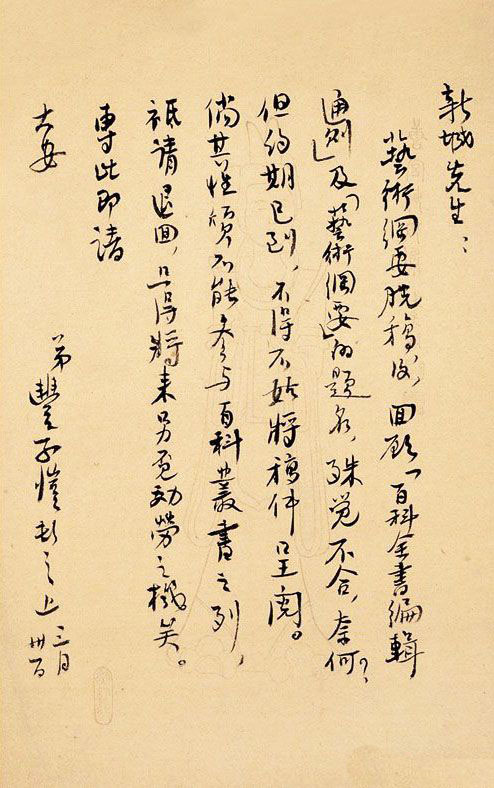 新城先生：
藝術綱要脫稿後，回顧「百科全書編輯
通例」及「藝術綱要」的題名，殊覺不合，奈何？
但約期已到，不得不姑將稿件呈閱。
倘其性質不能參与百科叢書之列，
祗請退回，且待將來另覓効勞之機矣。
專此即請
大安
弟豐子愷 上 三月
卅日